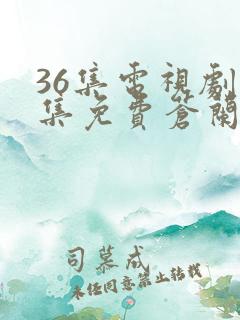 36集電視劇
集免費答閱
司慕成
未经同意禁止转载